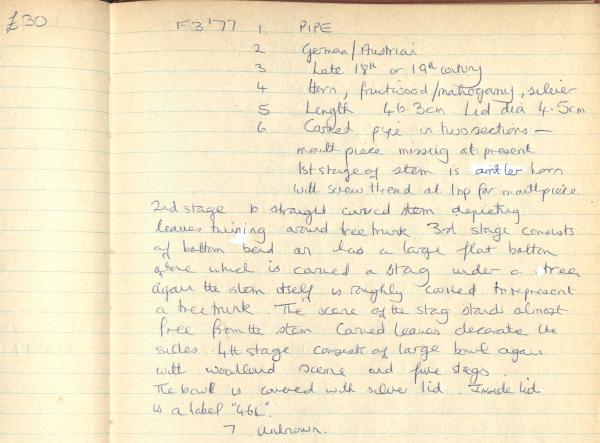 £30
F3'77 1 PIPE
2 German/Austrian
3 Late 18th or 19th century
4 Horn, fruitwood/mahogany, silver
5 Length 46.3cm Lid dia 4.5cm
6 Carved pipe in two sections —
mouthpiece missing at present
1st stage of stem is antler horn
with screw thread at top for mouthpiece
2nd stage is straight carved stem depicting
leaves twining around tree trunk 3rd stage consists
of bottom bend and has a large flat bottom
above which is carved a stag under a tree,
again the stem itself is roughly carved to represent
a tree trunk. The scene of the stag stands almost
free from the stem Carved leaves decorate the
sides. 4th stage consists of large bowl again
with woodland scene and five stags.
The bowl is covered with silver lid. Inside lid
is a label "46L".
7 Unknown.